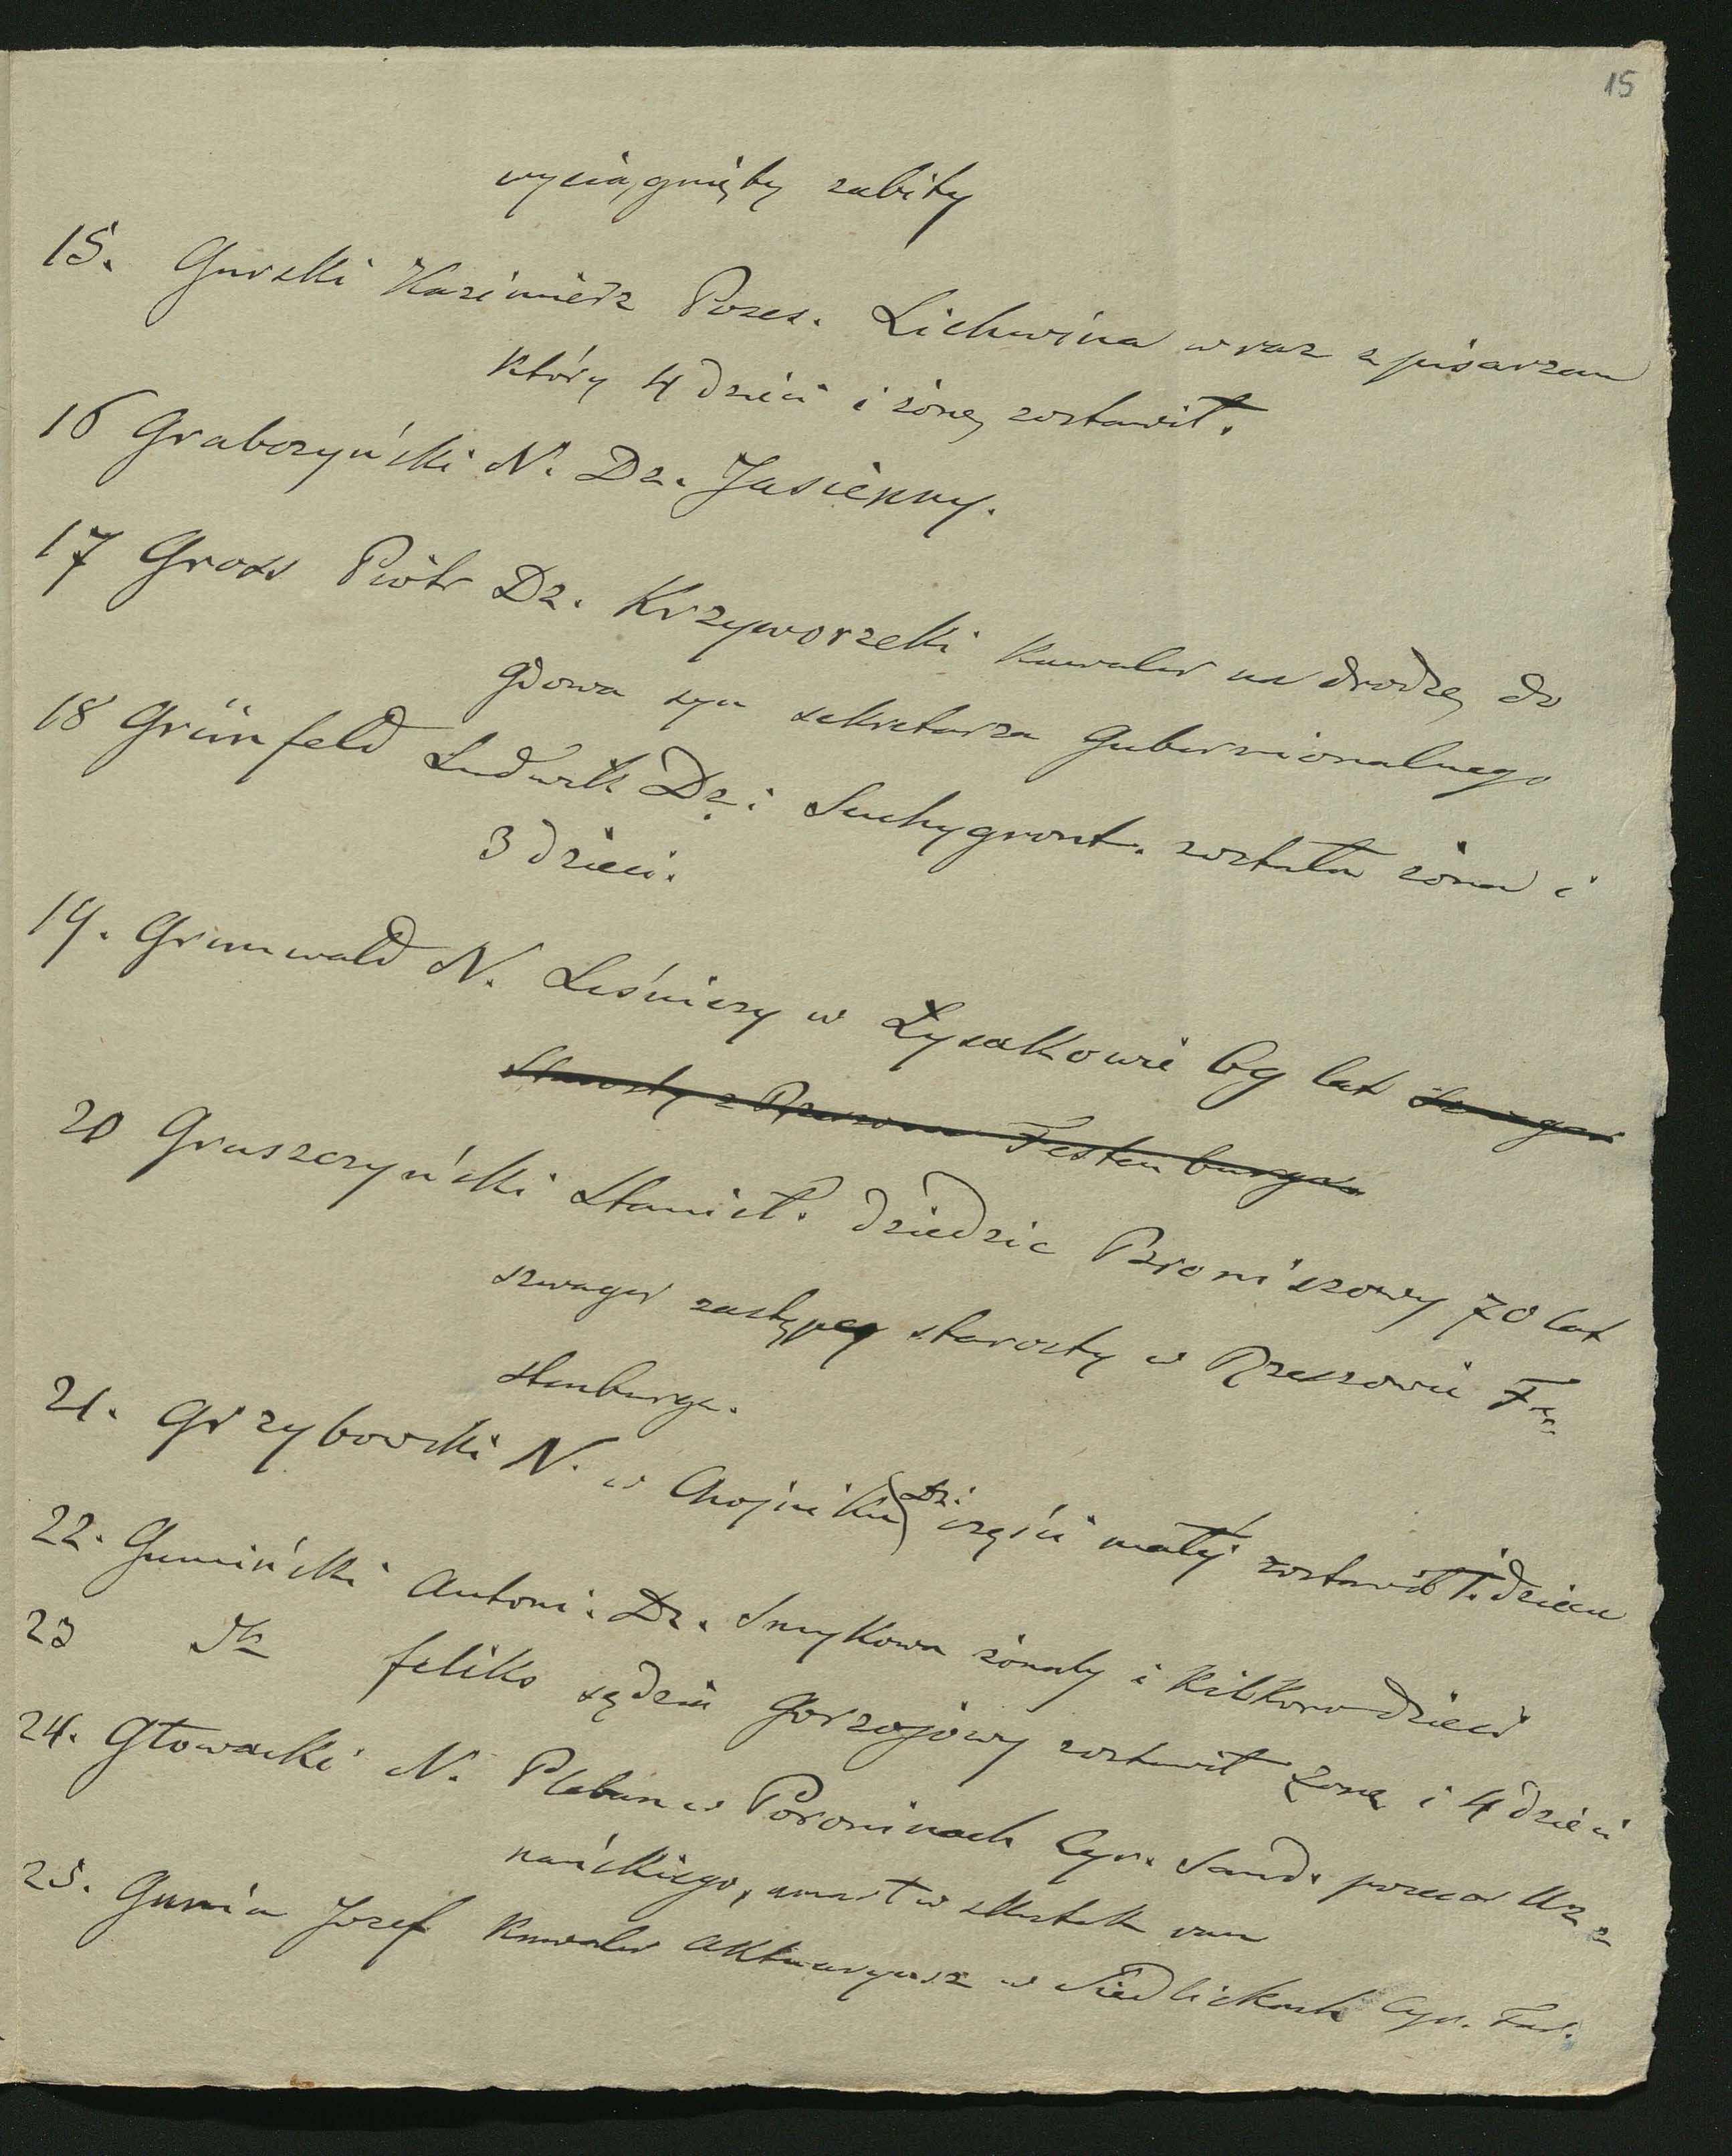 15
wyciągnięty zabity
15. Gurski Kazimierz Poses. Lichwina wraz z pisarzem
który 4 dzieci i żonę zostawił.
16 Graboszyński N. Dz. Jasienny.
17 Gross Piotr Dz. Krzyworzeki kawaler na drodze do
Gdowa syn sekretarza Gubernionalnego
18 Grünfeld Ludwik Dz: Suchygront. została żona i
3 dzieci.
19. Grunwald N. Leśniczy w Łysakowie 69 lat
Starosty z Rzeszowa Festenburga
20 Gruszczyński Stanisł. dziedzic Broniszowy 70 lat
szwagier zastępcy starosty w Rzeszowie Fe=
stenburga.
21. Grzybowski N. w Chojniku Dz. części małej zostawił 1. dziecie
22. Gumiński Antoni. Dz. Smykowa żonaty i kilkoro dzieci
23 Feliks sędzia Gorzejowy zostawił żonę i 4 dzieci
24. Głowacki N. Pleban w Poroninach Cyr. Sand. przez Urz=
nańskiego, umarł w skutek ran
25. Gunia Jozef Kawaler aktuaryusz w Siedliskach Cyr. Tar.